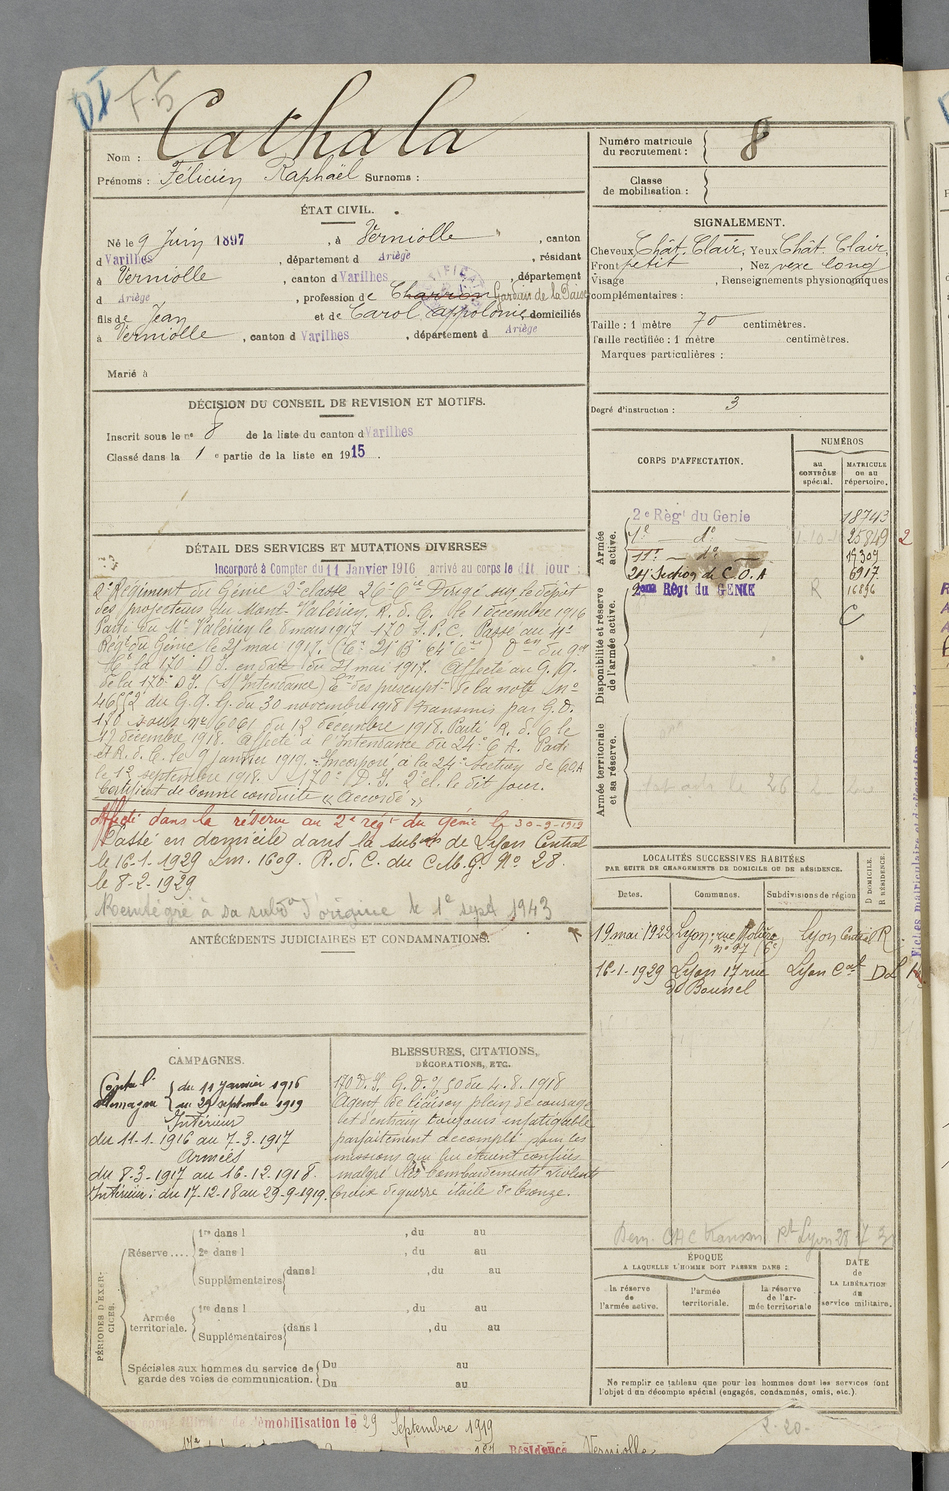 DI F.5
Cathala
Nom :
Prénoms : Félicien Raphaël Surnoms :
Numéro matricule
du recrutement : 8
Classe
de mobilisation :
ÉTAT CIVIL.
Né le 9 Juin 1897, à Verniolle, canton
d Varilhes, département d Ariège, résidant
à Verniolle, canton d Varilhes, département
d Ariège, profession de Charron Gardien de la
fils de Jean et de Carol Appolonie domiciliés
à Verniolle, canton d Varilhes, département d Ariège
Marié à
SIGNALEMENT.
Cheveux Chât. Clair, Yeux Chât. Clair,
Front petit, Nez vexe long
Visage, Renseignements physionomiques
complémentaires :
Taille : 1 mètre 70 centimètres.
Taille rectifiée : 1 mètre centimètres.
Marques particulières :
Degré d'instruction : 3
DÉCISION DU CONSEIL DE REVISION ET MOTIFS.
Inscrit sous le nº 8 de la liste du canton d Varilhes
Classé dans la 1 e partie de la liste en 1915.
CORPS D'AFFECTATION.
NUMÉROS
au
CONTRÔLE
spécial.
MATRICULE
ou au
répertoire.
Armée
active.
2e Régt du Génie 18743
1e dº 25849 2
11e dº 19309
24e Section de C.O.A 6917
2ème Régt du GENIE R 16896
C
Disponibilité et réserve
de l'armée active.
Armée territoriale
et sa réserve.
DÉTAIL DES SERVICES ET MUTATIONS DIVERSES
Incorporé à Compter du 11 Janvier 1916 arrivé au corps le dit jour :
2e Régiment du Génie 2e classe 26e Cie Dirigé sur le dépôt
des projecteurs du Mont Valérien, R. d. C. le 1 décembre 1916
Parti du Mt Valérien le 8 mars 1917 170 S.P.C. Passé au 11e
Régt du Génie le 21 mai 1917.
de la 170e D.I. en date du 21 mai 1917. Affecté au G. Q.
de la 170e D.I. (S/Intendance) En des prescript. de la note nº
du G.Q.G. du 30 novembre 1918 transmis par G.D.
170 sous nº 6061 du 12 décembre 1918. Parti R. d. C. le
17 décembre 1918. Affecté à l'Intendance du 24e C A. Parti
et R. d. C. le 9 janvier 1919. Incorporé à la 24e Section de COA
le 1er septembre 1918. 170e D.I. le dit jour.
Certificat de bonne conduite « Accordé »
Affecté dans la réserve au 2e régt du génie le 30-9-1919
Passé en domicile dans la subon de Lyon Central
le 16-1-1929 Em. 1609. R. d. C. du C.M.G. Nº 28.
le 8-2-1929
Réintégré à sa subon d'origine le 1e sept 1943
LOCALITÉS SUCCESSIVES HABITÉES
PAR SUITE DE CHANGEMENTS DE DOMICILE OU DE RÉSIDENCE.
Dates. Communes. Subdivisions de région D DOMICILE. R RÉSIDENCE.
19 mai 1922 Lyon, rue Molière Lyon Central R
nº 97 (6e)
16-1-1929 Lyon 17 rue Lyon Cal D
du Bonnel
ANTÉCÉDENTS JUDICIAIRES ET CONDAMNATIONS.
CAMPAGNES.
Contre l' Allemagne
du 11 janvier 1916
au 29 septembre 1919
Intérieur
du 11-1-1916 au 7-3-1917
Armées
du 8-3-1917 au 16-12-1918
Intérieur : du 17-12-18 au 29-9-1919.
BLESSURES, CITATIONS,
DÉCORATIONS, ETC.
170 D.I. G.O. nº 50 du 4-8-1918
Agent de liaison plein de courage
et d'entrain toujours infatigable
parfaitement accompli tous les
missions qui lui étaient confiées
malgré les bombardements violents
Croix de guerre étoile de bronze.
PÉRIODES D'EXERCICES.
Réserve....
1re dans l, du au
2e dans l, du au
Supplémentaires dans l, du au
Armée
territoriale.
1re dans l, du au
Supplémentaires dans l, du au
Spéciales aux hommes du service de
garde des voies de communication.
Du au
Du au
ÉPOQUE
A LAQUELLE L'HOMME DOIT PASSER DANS :
la réserve
de
l'armée active.
l'armée
territoriale.
la réserve
de l'armée territoriale
DATE
de
LA LIBÉRATION
du
service militaire.
Ne remplir ce tableau que pour les hommes dont les services font
l'objet d'un décompte spécial (engagés, condamnés, omis, etc.).
de démobilisation le 29 Septembre 1919
Résidence Verniolle